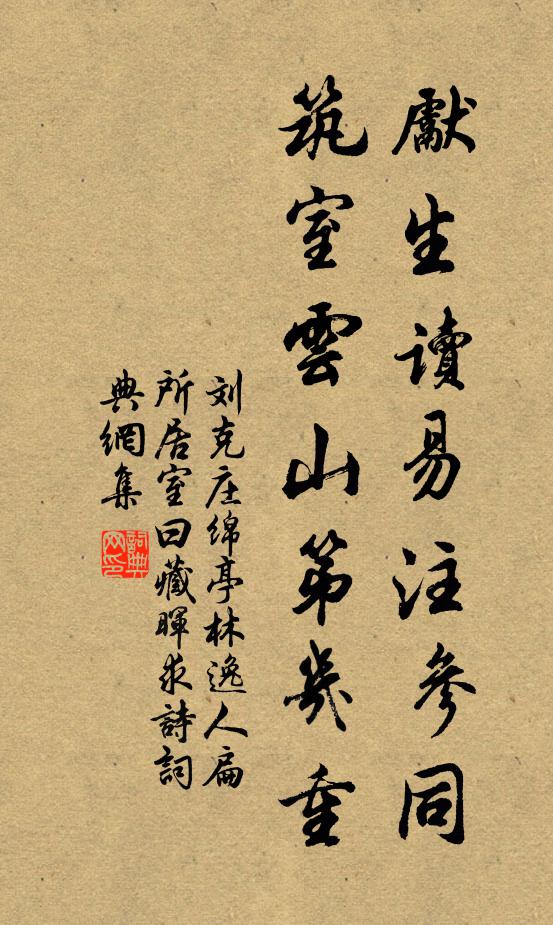 獻生讀易注參同
筑室雲山第幾重
刘克庄绵亭林逸人扁
所居室曰藏暉求詩詞
典網集
詞典網印